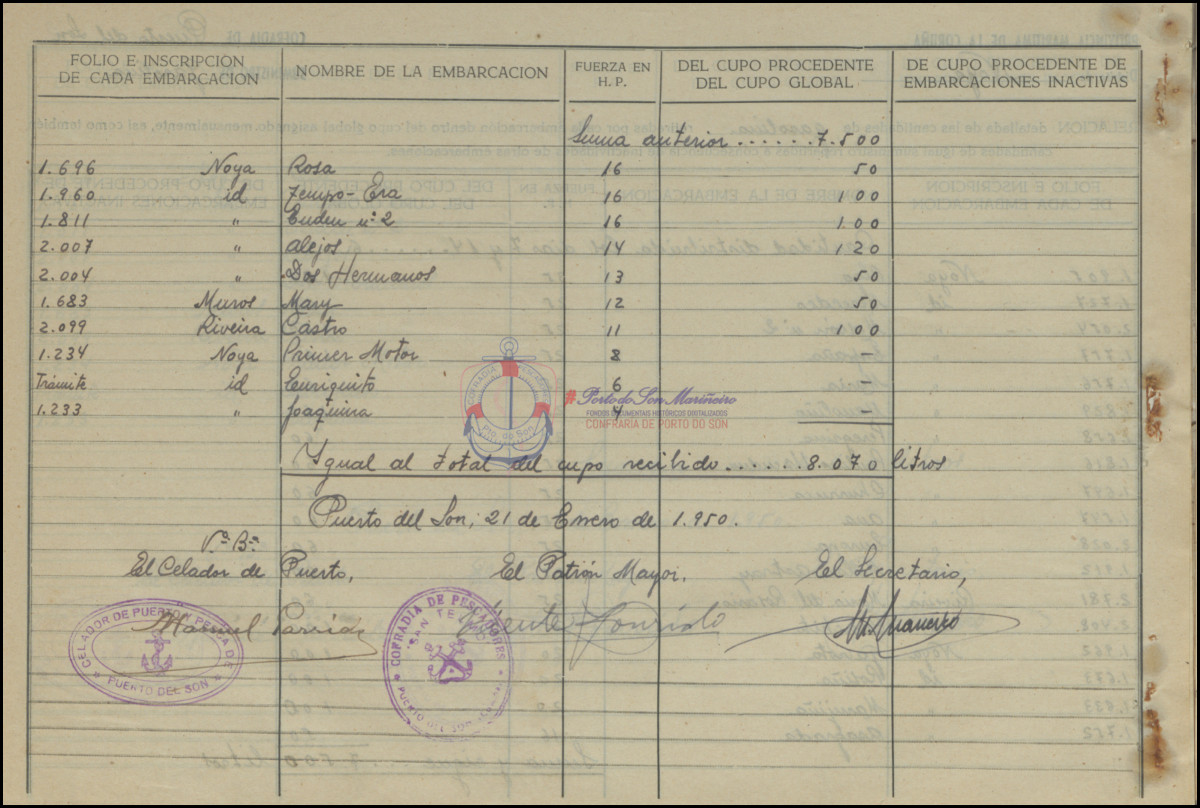 FOLIO E INSCRIPCIÓN DE CADA EMBARCACIÓN NOMBRE DE LA EMBARCACION FUERZA EN H. P. DEL CUPO PROCEDENTE DEL CUPO GLOBAL DE CUPO PROCEDENTE DE EMBARCACIONES INACTIVAS
Suma anterior ...... 7.500
1.696 Noya Rosa 16 50
1.960 id Tempo-Era 16 100
1.811 " Euden nº 2 16 100
2.007 " Alejos 14 120
2.004 " Dos Hermanos 13 50
1.683 Muros Mary 12 50
2.099 Riveira Castro 11 100
1.234 Noya Primer Motor 8 -
Trámite id Enriquito 6 -
1.233 " Joaquina 4 -
Ygual al total del cupo recibido ..... 8.070 litros
Puerto del Son, 21 de Enero de 1.950.
Vº Bº
El Celador de Puerto, El Patrón Mayor, El Secretario,
Manuel
CELADOR DE PUERTO Y PESCA DE
PUERTO DEL SON
COFRADIA DE PESCADORES
SAN TELMO
PUERTO DEL SON
COFRADIA
Pto. do Son
#Porto do Son Mariñeiro
FONDOS DOCUMENTAIS HISTÓRICOS DIXITALIZADOS
CONFRARIA DE PORTO DO SON